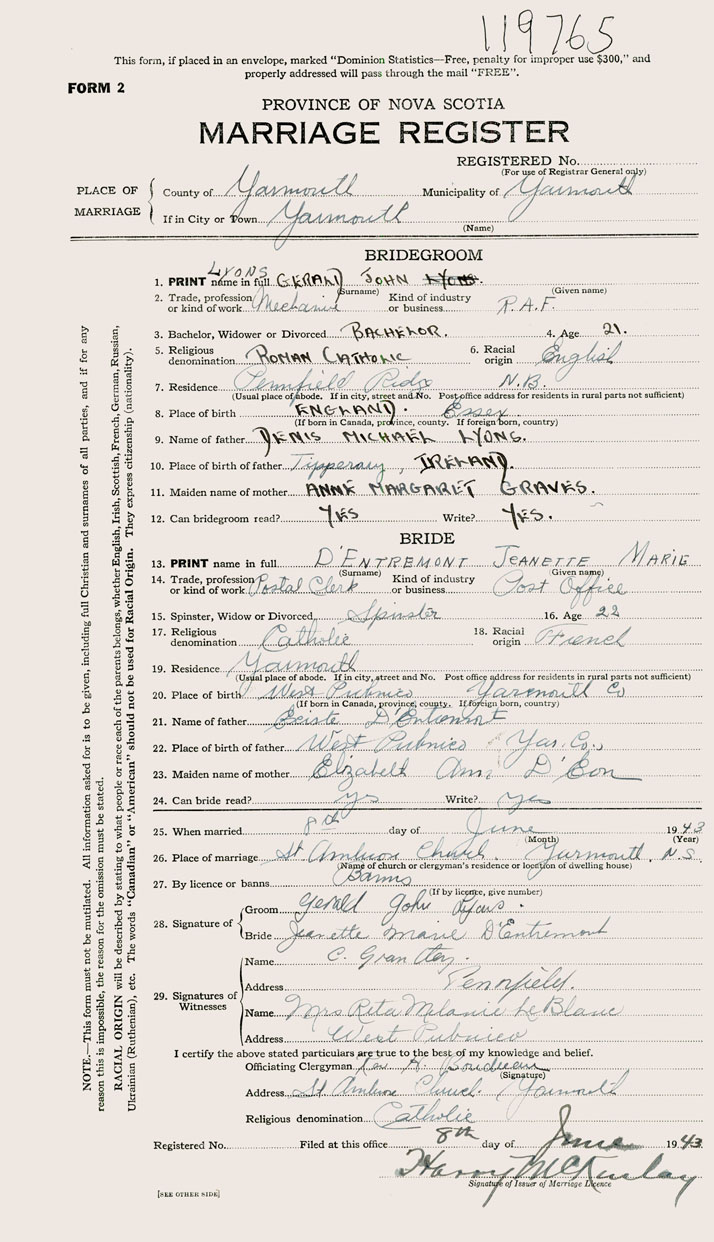 119765
This form, if placed in an envelope, marked “Dominion Statistics—Free, penalty for improper use $300,” and
properly addressed will pass through the mail “FREE”.
FORM 2
PROVINCE OF NOVA SCOTIA
MARRIAGE REGISTER
REGISTERED No.
(For use of Registrar General only)
PLACE OF MARRIAGE
County of Yarmouth Municipality of Yarmouth
If in City or Town Yarmouth
(Name)
BRIDEGROOM
LYONS
1. PRINT name in full GERALD JOHN LYONS.
(Surname) (Given name)
2. Trade, profession or kind of work Mechanic Kind of industry or business R.A.F.
3. Bachelor, Widower or Divorced BACHELOR. 4. Age 21.
5. Religious denomination ROMAN CATHOLIC 6. Racial origin English
7. Residence Pennfield Ridge N.B.
(Usual place of abode. If in city, street and No. Post office address for residents in rural parts not sufficient)
8. Place of birth ENGLAND. Essex
(If born in Canada, province, county. If foreign born, country)
9. Name of father DENIS MICHAEL LYONS.
10. Place of birth of father Tipperary, IRELAND.
11. Maiden name of mother ANNE MARGARET GRAVES.
12. Can bridegroom read? YES Write? YES.
BRIDE
13. PRINT name in full D'ENTREMONT JEANETTE MARIE
(Surname) (Given name)
14. Trade, profession or kind of work Postal Clerk Kind of industry or business Post Office
15. Spinster, Widow or Divorced Spinster 16. Age 22
17. Religious denomination Catholic 18. Racial origin French
19. Residence Yarmouth
(Usual place of abode. If in city, street and No. Post office address for residents in rural parts not sufficient)
20. Place of birth West Pubnico Yarmouth Co
(If born in Canada, province, county. If foreign born, country)
21. Name of father D'Entremont
22. Place of birth of father West Pubnico Yar. Co.,
23. Maiden name of mother Elizabeth Ann D'Eon
24. Can bride read? yes Write? yes
25. When married 8th day of June 1943
(Month) (Year)
26. Place of marriage St Ambrose Church. Yarmouth, N.S.
(Name of church or clergyman's residence or location of dwelling house)
27. By licence or banns Banns
(If by licence, give number)
28. Signature of
Groom Gerald John Lyons.
Bride Jeanette Marie D'Entremont
29. Signatures of Witnesses
Name C.
Address Pennfield.
Name Mrs Rita Melanie LeBlanc
Address West Pubnico
I certify the above stated particulars are true to the best of my knowledge and belief.
Officiating Clergyman Rev. A. Boudreau
(Signature)
Address St Ambrose Church. Yarmouth
Religious denomination Catholic
Registered No. Filed at this office 8th day of June 1943
Harry McKinlay
Signature of Issuer of Marriage Licence
[SEE OTHER SIDE]
NOTE.—This form must not be mutilated. All information asked for is to be given, including full Christian and surnames of all parties, and if for any
reason this is impossible, the reason for the omission must be stated.
RACIAL ORIGIN will be described by stating to what people or race each of the parents belongs, whether English, Irish, Scottish, French, German, Russian,
Ukrainian (Ruthenian), etc. The words “Canadian” or “American” should not be used for Racial Origin. They express citizenship (nationality).